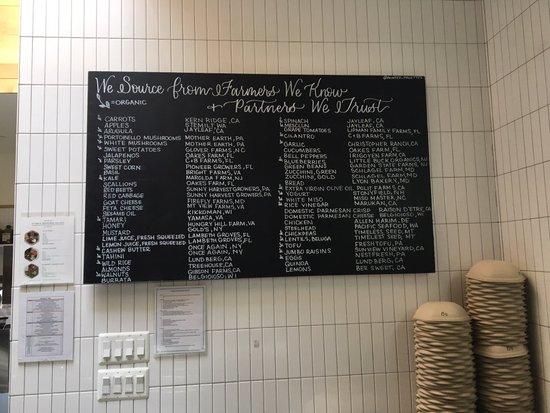 We Source from Farmers We Know
+ Partners We Trust
=ORGANIC
CARROTS KERN RIDGE, CA
APPLES STEMILT, WA
ARUGULA JAYLEAF, CA
PORTOBELLO MUSHROOMS MOTHER EARTH, PA
WHITE MUSHROOMS MOTHER EARTH, PA
SWEET POTATOES GLOVER FARMS, NC
JALAPENOS OAKES FARM, FL
PARSLEY C+B FARMS, FL
SWEET CORN PIONEER GROWERS, FL
BASIL BRIGHT FARMS, VA
KALE MAROLDA FARM, NJ
SCALLIONS OAKES FARM, FL
RED BEETS SUNNY HARVEST GROWERS, PA
RED CABBAGE SUNNY HARVEST GROWERS, PA
GOAT CHEESE FIREFLY FARMS, MD
FETA CHEESE MT VIEW FARMS, VA
SESAME OIL KIKKOMAN, WI
TAMARI YAMASA, VA
HONEY HILL FARM, VA
MUSTARD GOLDS, NY
LIME JUICE, FRESH SQUEEZED LAMBETH GROVES, FL
LEMON JUICE, FRESH SQUEEZED LAMBETH GROVES, FL
CASHEW BUTTER ONCE AGAIN, NY
TAHINI ONCE AGAIN, NY
WILD RICE LUNDBERG, CA
ALMONDS TREEHOUSE, CA
WALNUTS GIBSON FARMS, CA
BURRATA BELGIOIOSO, WI
SPINACH JAYLEAF, CA
MESCLUN JAYLEAF, CA
GRAPE TOMATOES LIPMAN FAMILY FARMS, FL
CILANTRO C+B FARMS, FL
GARLIC CHRISTOPHER RANCH, CA
CUCUMBERS OAKES FARM, FL
BELL PEPPERS IRIGOYEN FARM, CA
BLUEBERRIES LITTLE BUCK ORGANICS, NJ
GREEN BEANS GARDEN STATE FARMS, NJ
ZUCCHINI, GREEN SCHLAGEL FARM, MD
ZUCCHINI, GOLD SCHLAGEL FARM, MD
BREAD LYON BAKERY, MD
EXTRA VIRGIN OLIVE OIL POLIT FARMS, CA
YOGURT STONYFIELD, NH
WHITE MISO MISO MASTER, NC
RICE VINEGAR MARUKAN, CA
DOMESTIC PARMESAN CRISP RAISON D'ETRE, CA
DOMESTIC PARMESAN CHEESE BELGIOIOSO, WI
CHICKEN ALLEN HARIM, DE
STEELHEAD PACIFIC SEAFOOD, WA
CHICKPEAS TIMELESS SEED, MT
LENTILS, BELUGA TIMELESS SEED, MT
TOFU FRESH TOFU, PA
JUMBO RAISINS SUN VIEW VINEYARD, CA
EGGS NESTFRESH, PA
QUINOA LUNDBERG, CA
LEMONS BEE SWEET, CA